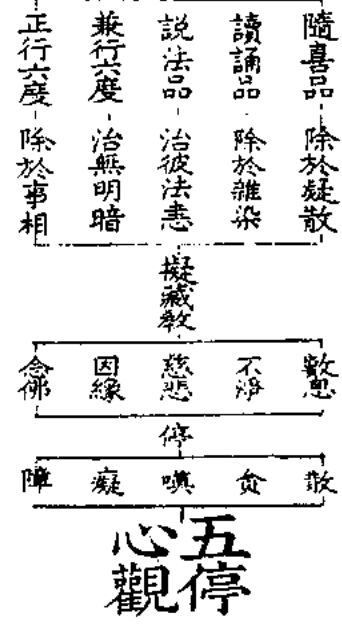 隨喜品 除於疑散
讀誦品 除於雜染
説法品 治彼法恚
兼行六度 治無明暗
正行六度 除於事相
擬藏教
數息
不淨
慈悲
因緣
念佛
停
散
貪
嗔
癡
障
五停
心觀